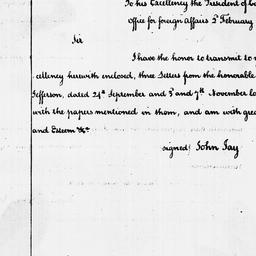 To his Excellency the President of
Office for foreign Affairs 2ᵈ February
Sir
I have the honor to transmit to
cellency herewith enclosed, three Letters from the honorable
Jefferson, dated 24ᵗʰ September and 5 and 7ᵗʰ November
with the papers mentioned in them, and am with
and Esteem &cᵃ
signed/ John Jay